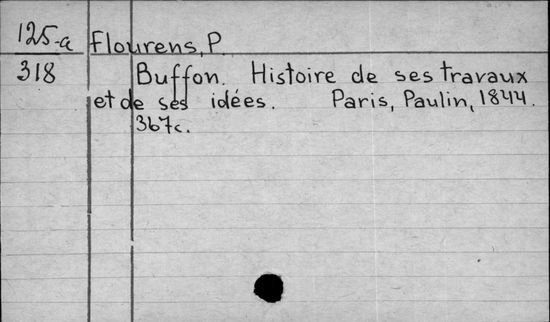 125-a Flourens, P.
318 Buffon. Histoire de ses travaux
et de ses idées. Paris, Paulin, 1844.
367c.